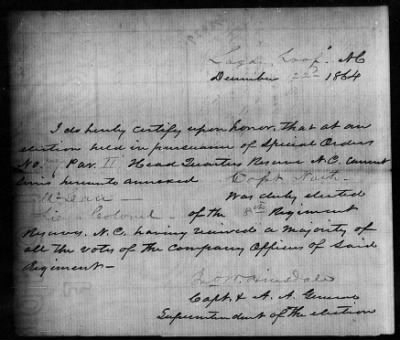 N.C.
December 22nd 1864
I do hereby certify upon honor, that at an
election held in pursuance of Special Orders
No. Par. II Head Quarters Reserve N.C.
hereunto annexed Capt
Was duly elected
Lt Colonel of the 8th Regiment
Reserves. N.C. having received a majority of
all the votes of the Company Officers of Said
Regiment —
Capt. & A. A. General
Superintendent of the election